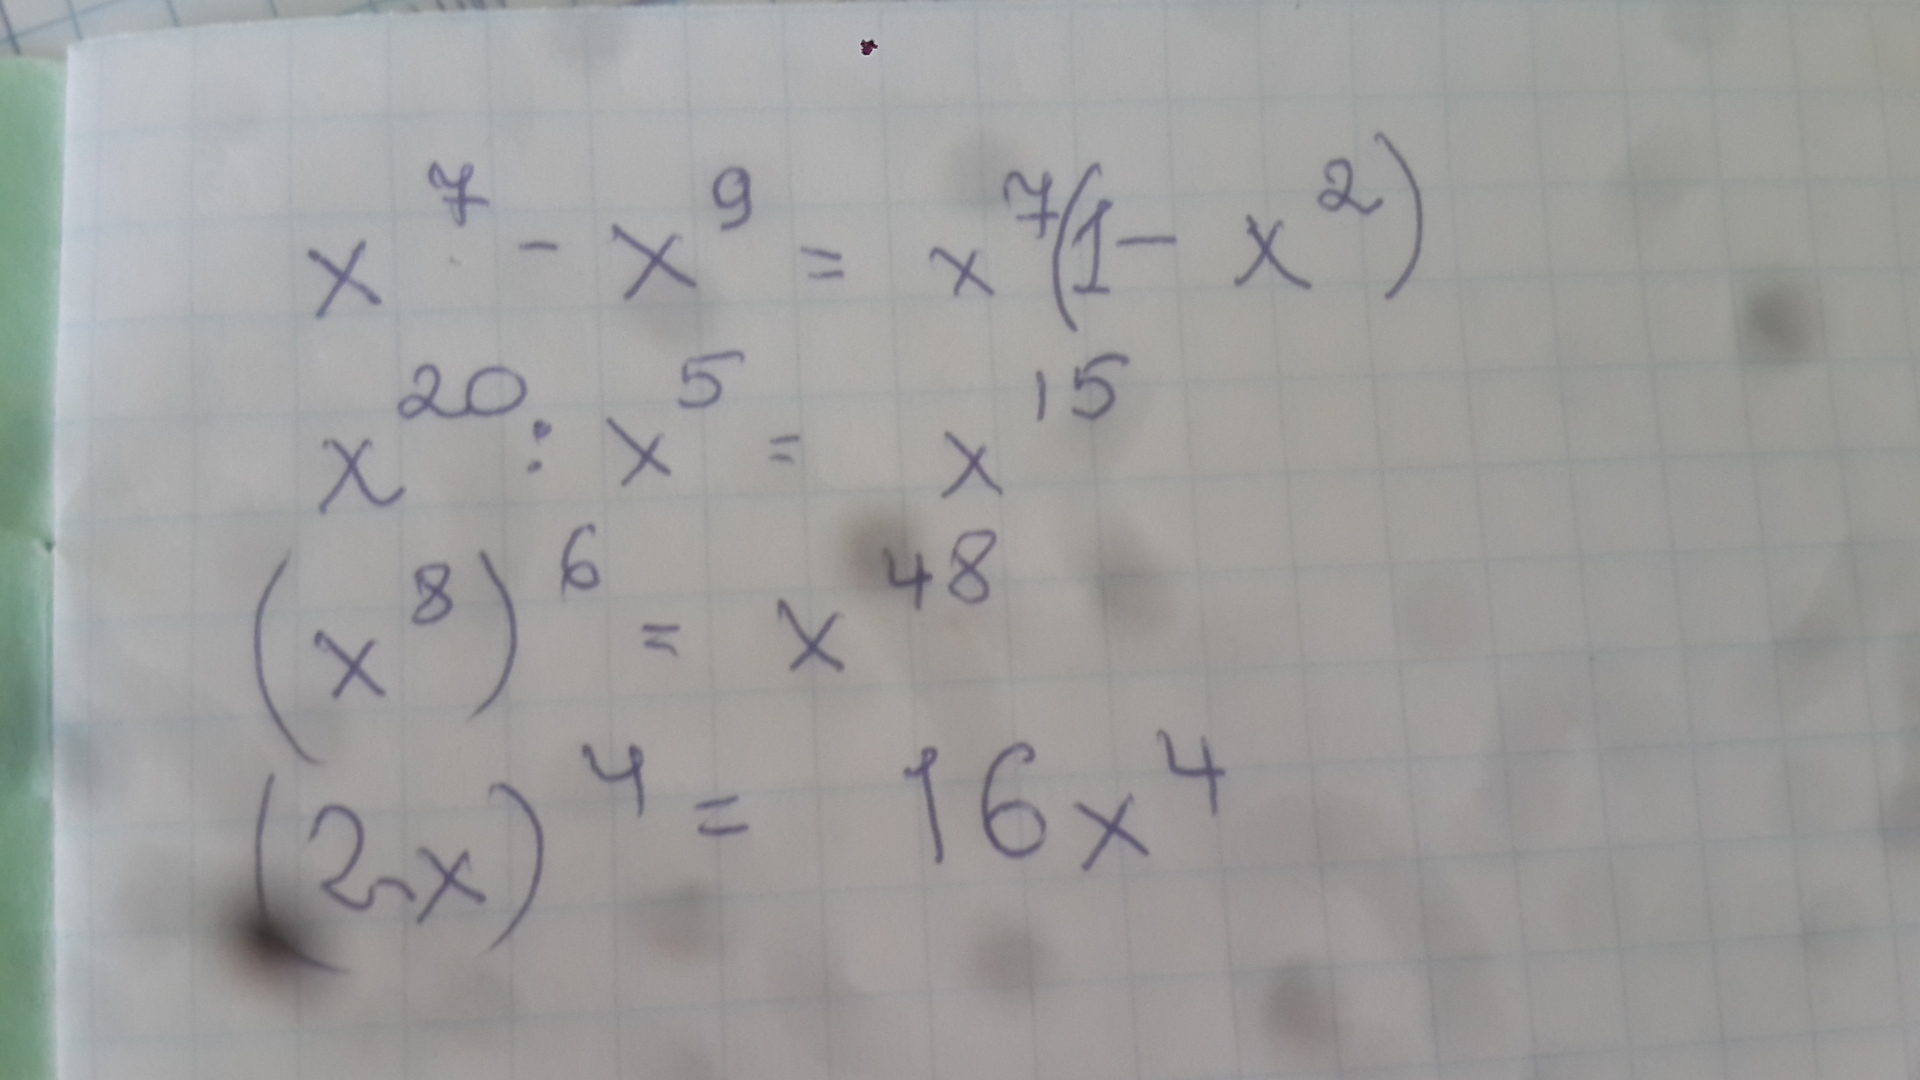 x⁷ - x⁹ = x⁷(1 - x²)
x²⁰ : x⁵ = x¹⁵
(x⁸)⁶ = x⁴⁸
(2x)⁴ = 16x⁴